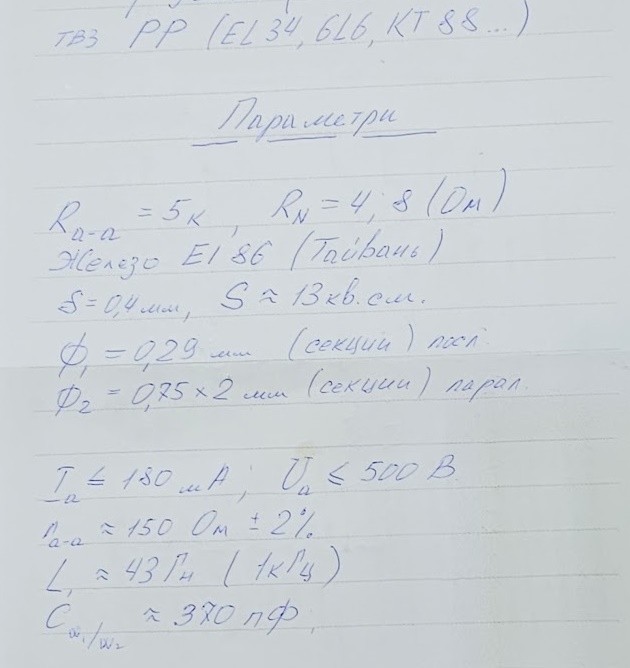 ТВЗ PP (EL34, 6L6, KT88...)
Параметри
Ra-a = 5к, RN = 4, 8 (Ом)
Железо EI 86 (Тайвань)
δ = 0,4 мм, S ≈ 13 кв. см.
ф1 = 0,29 мм (секции) посл.
ф2 = 0,75 × 2 мм (секции) парал.
Ia ≤ 180 мА; Ua ≤ 500 В
ra-a ≈ 150 Ом ± 2%
L1 ≈ 43 Гн (1кГц)
Cw1/w2 ≈ 370 пФ,